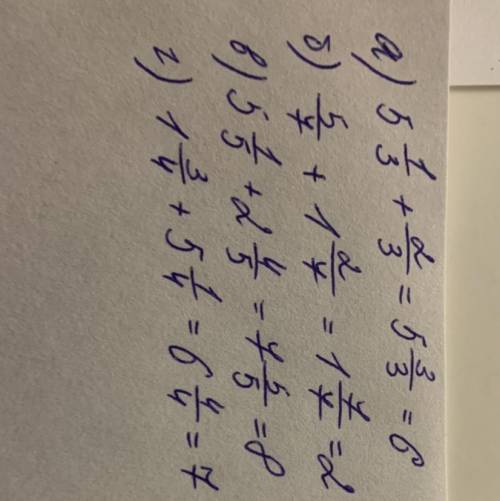 а) 5 1/3 + 2/3 = 5 3/3 = 6
б) 5/7 + 1 2/7 = 1 7/7 = 2
в) 5 1/5 + 2 4/5 = 7 5/5 = 8
г) 1 3/4 + 5 1/4 = 6 4/4 = 7